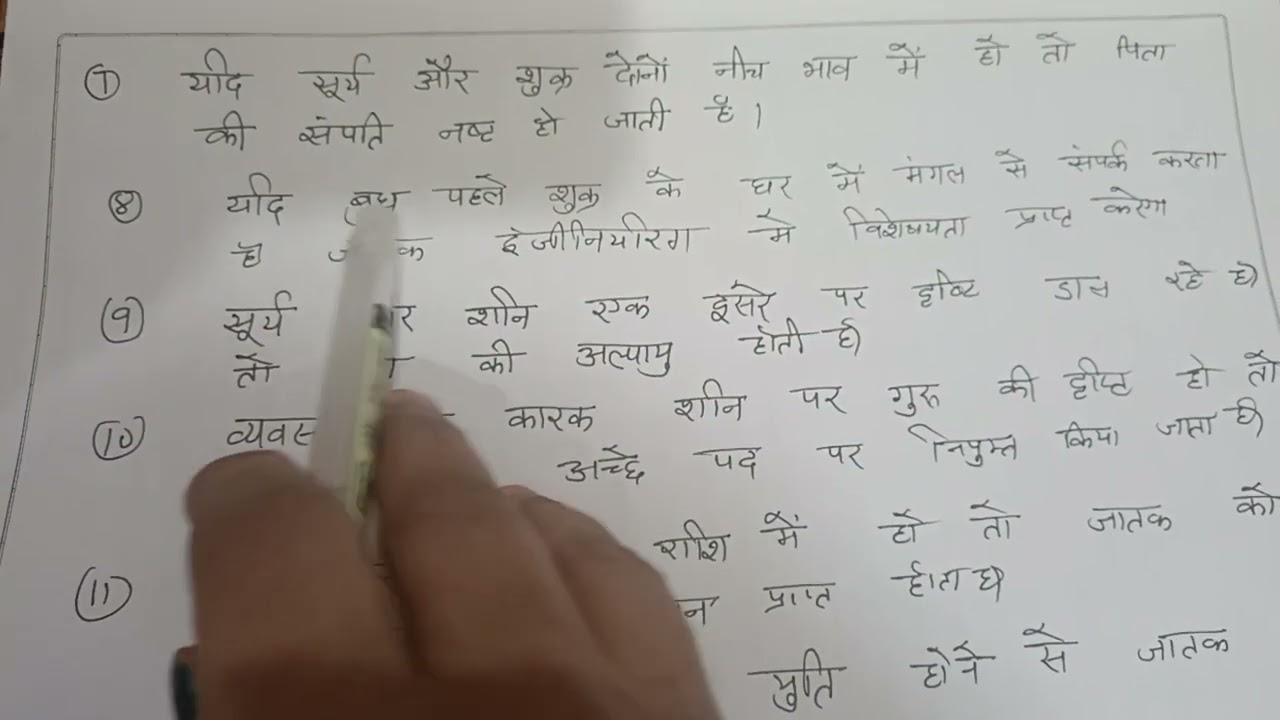 (7) यदि सूर्य और शुक्र दोनों नीच भाव में हो तो पिता
की संपति नष्ट हो जाती है।
(8) यदि बुध पहले शुक्र के घर में मंगल से संपर्क करता
है इंजीनियरिंग मे विशेषयता प्राप्त करेगा
(9) सूर्य शनि एक दूसरे पर दृष्टि डाल रहे है
तो की अल्पायु होती है
(10) कारक शनि पर गुरु की दृष्टि हो तो
अच्छे पद पर नियुक्त किया जाता है
(11) राशि में हो तो जातक को
प्राप्त होता है
युति होने से जातक